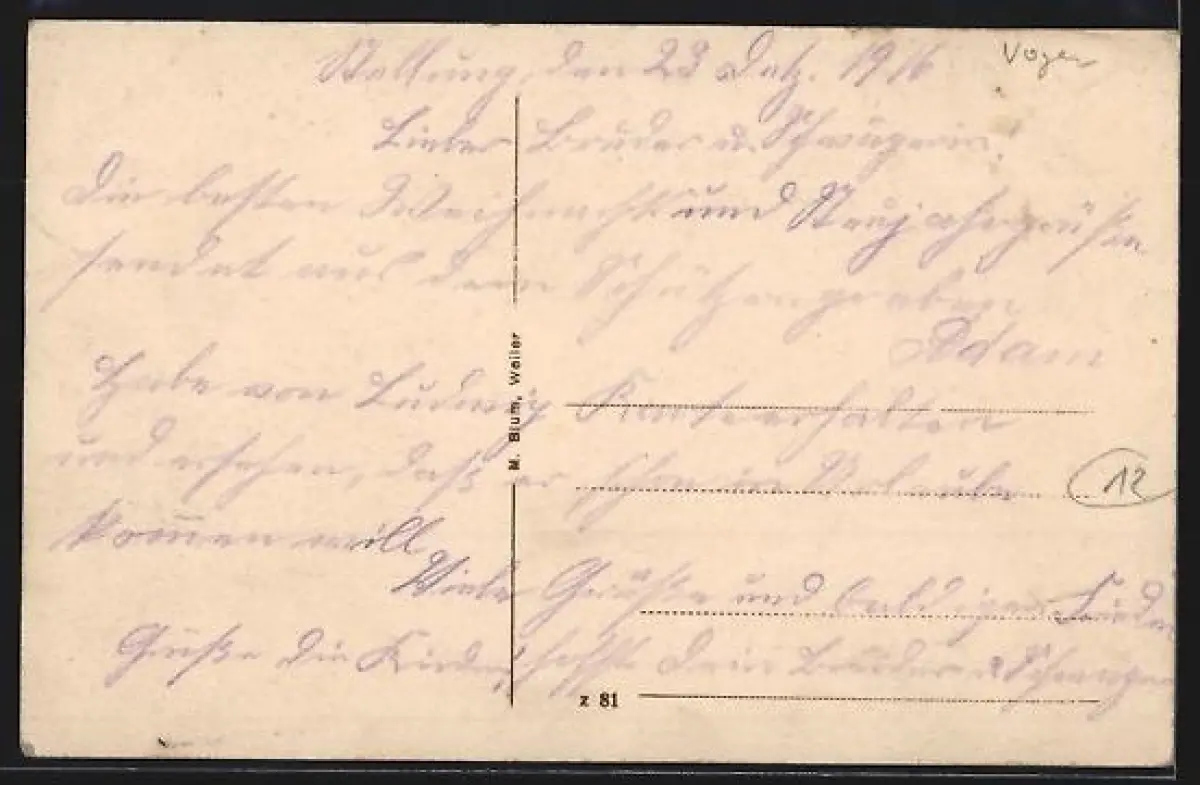 Stellung, den 23 Detz. 1916
Vogen
Lieber Bruder u. Schwägerin!
Die besten Weihnacht und Neujahrsgrüße
sendet aus dem Schützengraben
Adam
Habe von Ludwig Karte erhalten
und ersehen, daß er schon in Urlaub
12
kommen will
Viele Grüße und baldigen Frieden
Grüße die Kinder, hofft Dein Bruder u Schwager
M. Blum, Weiler
z 81